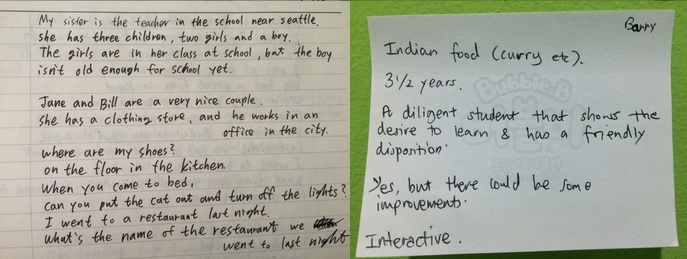 My sister is the teacher in the school near seattle.
she has three children, two girls and a boy.
The girls are in her class at school, but the boy
isn't old enough for school yet.
Jane and Bill are a very nice couple.
she has a clothing store, and he works in an
office in the city.
where are my shoes?
on the floor in the kitchen.
when you come to bed,
can you put the cat out and turn off the lights?
I went to a restaurant last night.
what's the name of the restaurant we
went to last night
Barry
Indian food (curry etc).
3 1/2 years.
A diligent student that shows the
desire to learn & has a friendly
disposition.
Yes, but there could be some
improvements.
Interactive.